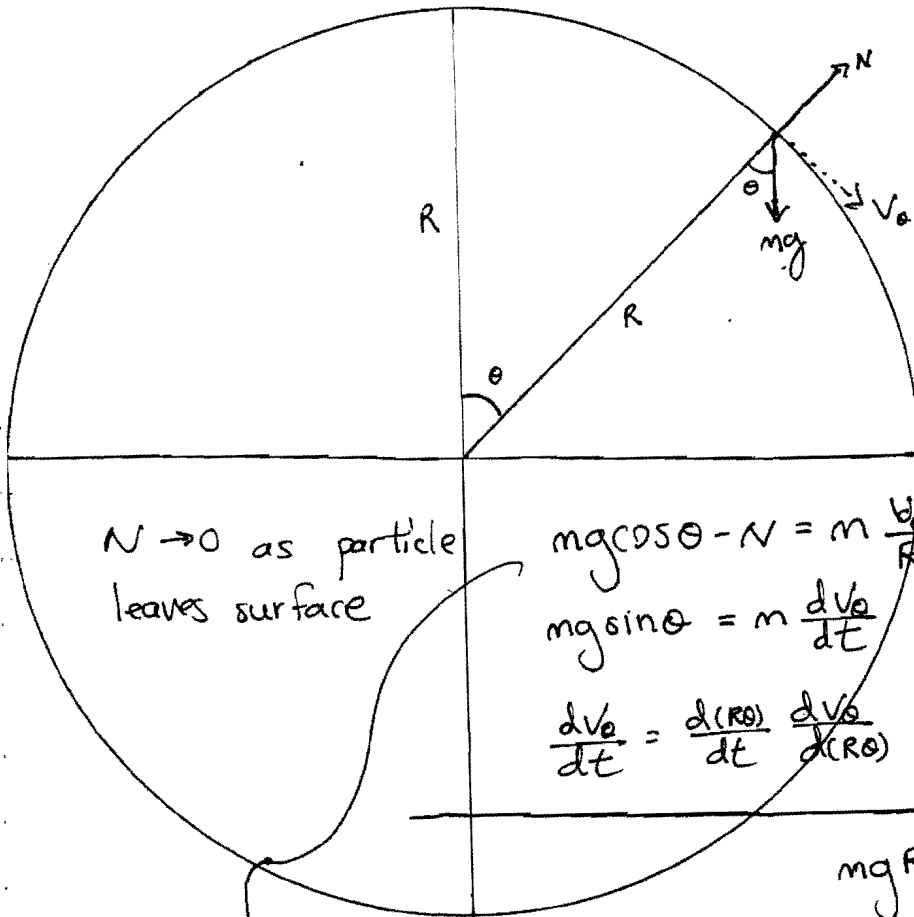 N
R
θ
V_θ
mg
R
θ
N → 0 as particle
leaves surface
mg cos θ - N = m
mg sin θ = m dV_θ/dt
dV_θ/dt = d(Rθ)/dt dV_θ/d(Rθ)
mg